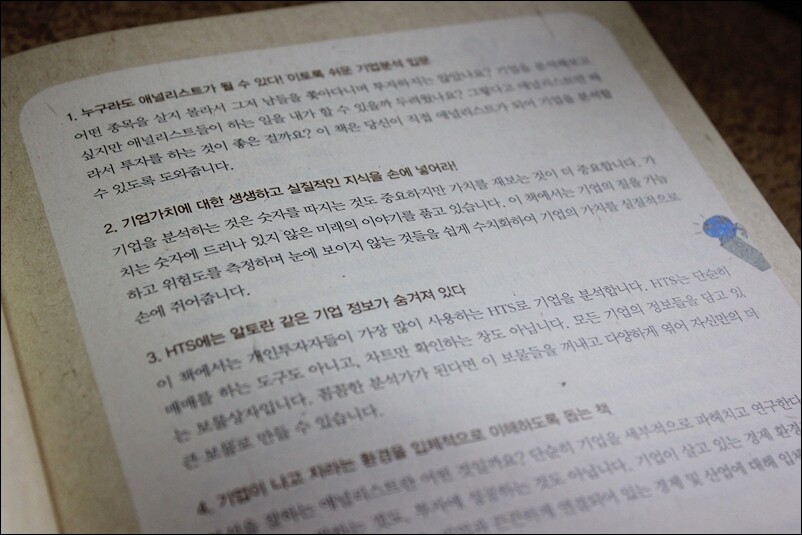 1. 누구라도 애널리스트가 될 수 있다! 이토록 쉬운 기업분석 입문
어떤 종목을 살지 몰라서 그저 남들을 쫓아다니며 투자하지는 않았나요? 기업을 분석해보고
싶지만 애널리스트들이 하는 일을 내가 할 수 있을까 두려웠나요? 그렇다고 애널리스트만 따
라서 투자를 하는 것이 좋은 걸까요? 이 책은 당신이 직접 애널리스트가 되어 기업을 분석할
수 있도록 도와줍니다.
2. 기업가치에 대한 생생하고 실질적인 지식을 손에 넣어라!
기업을 분석하는 것은 숫자를 따지는 것도 중요하지만 가치를 재보는 것이 더 중요합니다. 가
치는 숫자에 드러나 있지 않은 미래의 이야기를 품고 있습니다. 이 책에서는 기업의 질을 가늠
하고 위험도를 측정하며 눈에 보이지 않는 것들을 쉽게 수치화하여 기업의 가치를 실질적으로
손에 쥐어줍니다.
3. HTS에는 알토란 같은 기업 정보가 숨겨져 있다
이 책에서는 개인투자자들이 가장 많이 사용하는 HTS로 기업을 분석합니다. HTS는 단순히
매매를 하는 도구도 아니고, 차트만 확인하는 창도 아닙니다. 모든 기업의 정보들을 담고 있
는 보물상자입니다. 꼼꼼한 분석가가 된다면 이 보물들을 꺼내고 다양하게 엮어 자신만의 더
큰 보물로 만들 수 있습니다.
4. 기업이 나고 자라는 환경을 입체적으로 이해하도록 돕는 책
잘하는 애널리스트란 어떤 것일까요? 단순히 기업을 세부적으로 파헤치고 연구한다
것도, 투자에 성공하는 것도 아닙니다. 기업이 살고 있는 경제 환경
튼튼하게 연결되어 있는 경제 및 산업에 대해 입체